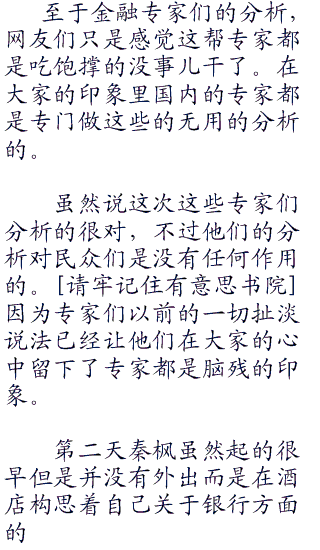 至于金融专家们的分析，
网友们只是感觉这帮专家都
是吃饱撑的没事儿干了。在
大家的印象里国内的专家都
是专门做这些的无用的分析
的。
虽然说这次这些专家们
分析的很对，不过他们的分
析对民众们是没有任何作用
的。[请牢记住有意思书院]
因为专家们以前的一切扯淡
说法已经让他们在大家的心
中留下了专家都是脑残的印
象。
第二天秦枫虽然起的很
早但是并没有外出而是在酒
店构思着自己关于银行方面
的